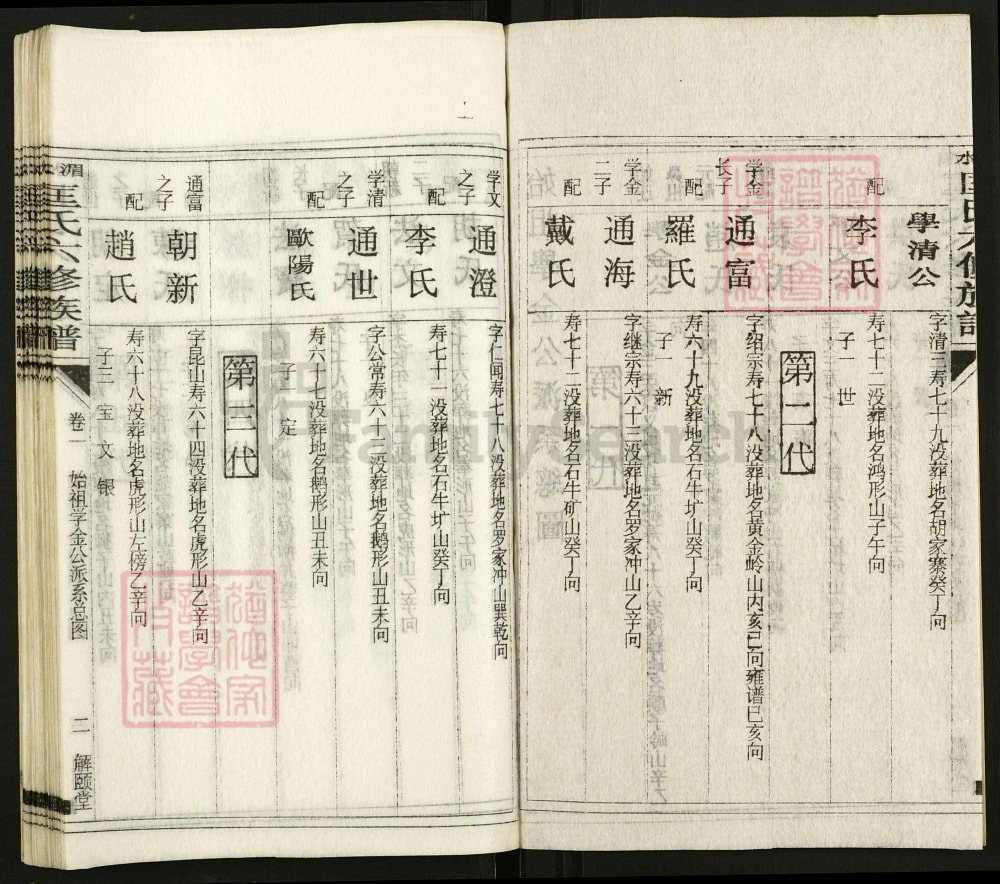 學清公
字清三寿七十九没葬地名胡家寨癸丁向
配
李氏
寿七十二没葬地名鸿形山子午向
子一 世
第二代
学金
长子
通富
字绍宗寿七十八没葬地名黄金岭山内亥巳向雍谱巳亥向
配
羅氏
寿六十九没葬地名石牛圹山癸丁向
子一 新
学金
二子
通海
字继宗寿六十三没葬地名罗家冲山乙辛向
配
戴氏
寿七十二没葬地名石牛矿山癸丁向
学文
之子
通澄
字仁闻寿七十八没葬地名罗家冲山巽乾向
配
李氏
寿七十一没葬地名石牛圹山癸丁向
学清
之子
通世
字公常寿六十三没葬地名鹅形山丑未向
配
歐陽氏
寿六十七没葬地名鹅形山丑未向
子一 定
第三代
通富
之子
朝新
字昆山寿六十四没葬地名虎形山乙辛向
配
趙氏
寿六十八没葬地名虎形山左傍乙辛向
子三 宝 文 银
匡氏六修族譜
卷一 始祖学金公派系总图
二 解颐堂
FamilySearch